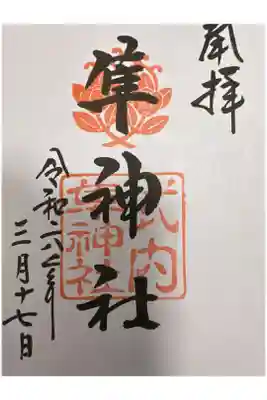 奉拝
隼神社
式内
隼神社
令和六年
三月十七日